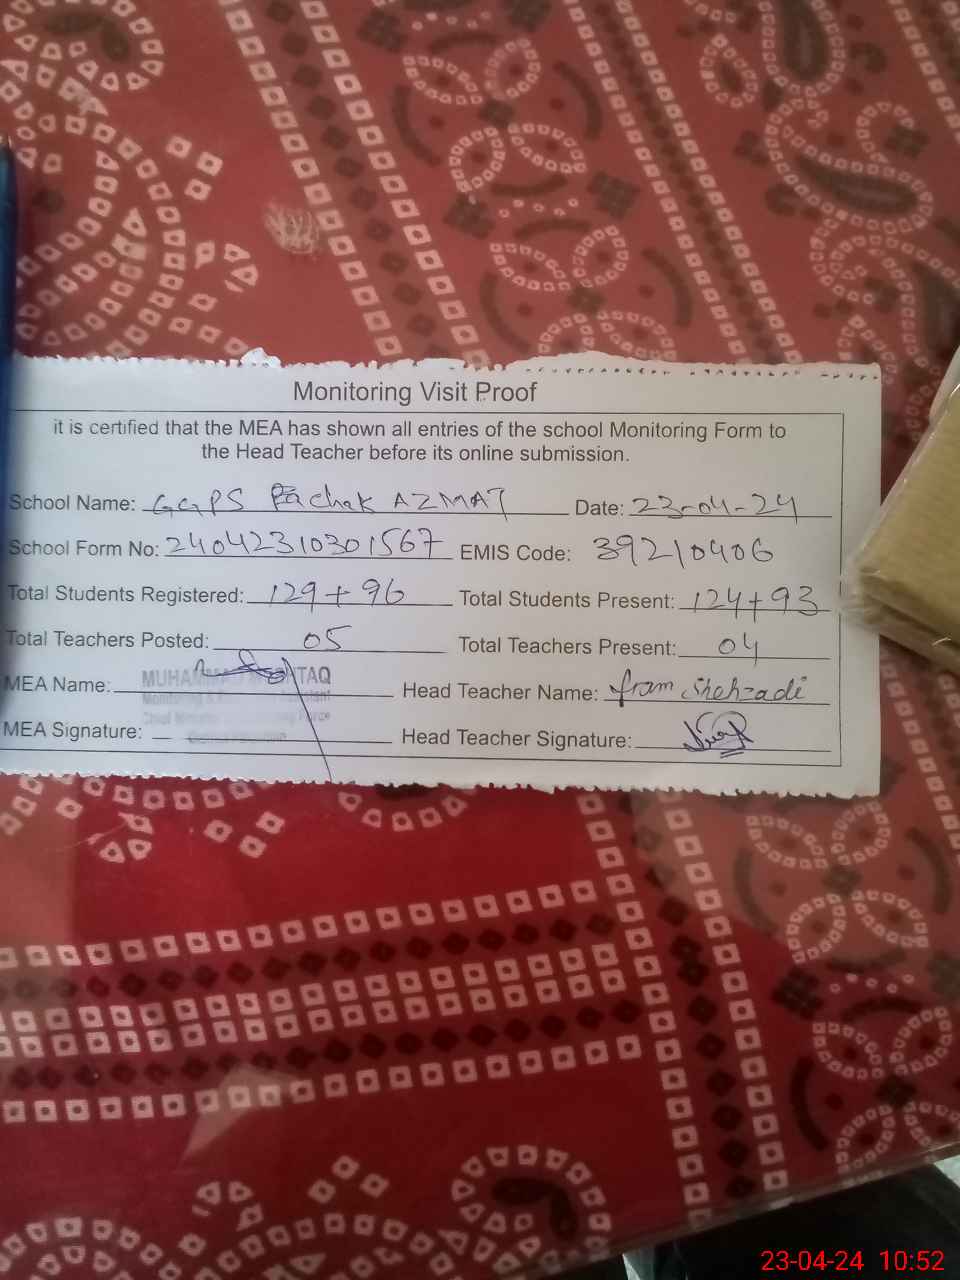 Monitoring Visit Proof
it is certified that the MEA has shown all entries of the school Monitoring Form to
the Head Teacher before its online submission.
School Name: GGPS Pachak AZMAT Date: 23-04-24
School Form No: 24042310301567 EMIS Code: 39210406
Total Students Registered: 129+96 Total Students Present: 124+93
Total Teachers Posted: 05 Total Teachers Present: 04
MEA Name: MUHAMMAD TAQ Head Teacher Name: Iram Shehzadi
MEA Signature: Head Teacher Signature:
23-04-24 10:52